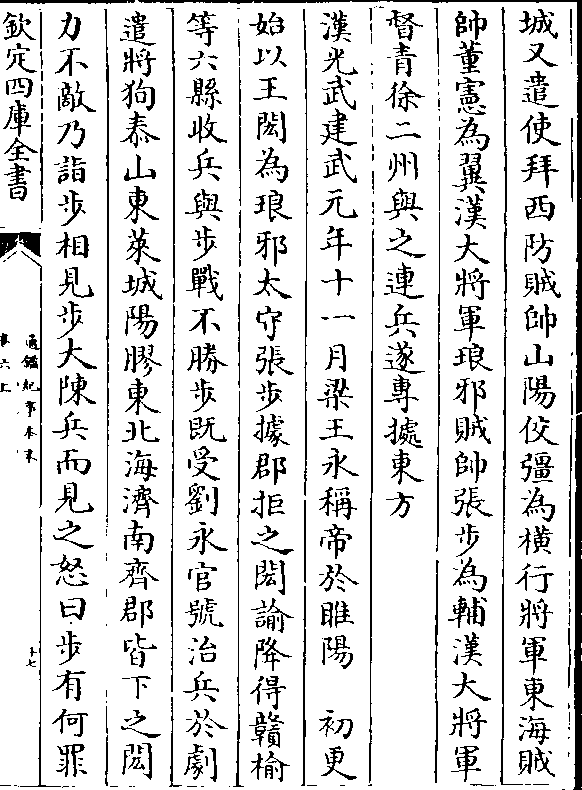 城又遣使拜西防賊帥山陽佼彊為橫行將軍東海賊
帥董憲為翼漢大將軍琅邪賊帥張步為輔漢大將軍
督青徐二州與之連兵遂專據東方
漢光武建武元年十一月梁王永稱帝於睢陽　初更
始以王閎為琅邪太守張步據郡拒之閎諭降得贛榆
等六縣收兵與步戰不勝步既受劉永官號治兵於劇
遣將狥泰山東萊城陽膠東北海濟南齊郡皆下之閎
力不敵乃詣步相見步大陳兵而見之怒曰步有何罪
欽定四庫全書
通鑑紀事本末
卷六上
十七